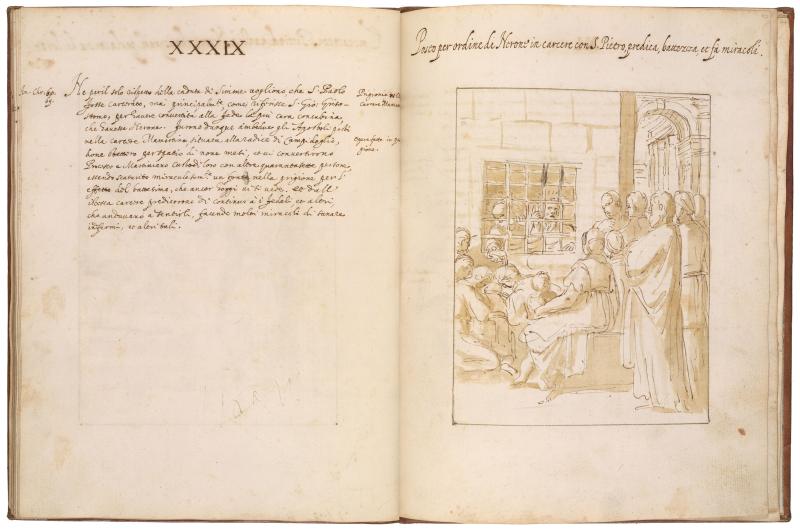 XXXIX
Ne per il solo rispetto della caduta di Simone vogliono che S. Paolo
fosse carcerato, ma principalm.te come riferisce S. Gio: Grisos-
stomo, per havere convertita alla fede la più cara concubina,
che havesse Nerone. furono dunque ambedue gli Apostoli posti
nella carcere Mamertina situata alla radice di Campidoglio,
hove stettero per spatio di nove mesi, et vi convertirono
Processo e Martiniano Custodi loro con altre quarantasette persone,
essendo scaturito miracolosam.te un fonte nella prigione per l'
effetto del battesimo, che ancor hoggi vi si vede. et dall'
istessa carcere predicorono di continuo a i fedeli et altri,
che andavano a sentirli, facendo molti miracoli di sanare
infermi, et altri tali.
Prigione
Carcere
prigione.
Posto per ordine di Nerone in carcere con S. Pietro, predica, battezza, et fà miracoli.